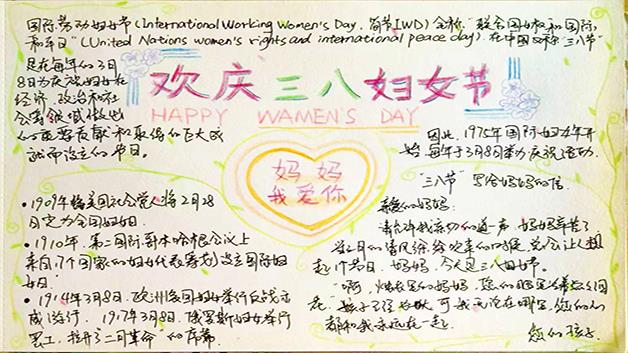 国际劳动妇女节(International Working Women's Day, 简写IWD)全称"联合国妇女权利和国际
和平日"(United Nations women's rights and international peace day). 在中国又称"三八节"
是在每年的3月
8日为庆祝妇女在
经济、政治和社
会等领域做出
的重要贡献和取得的巨大成
就而设立的节日。
欢庆三八妇女节
HAPPY WAMEN'S DAY
妈妈
我爱你
因此, 1975年国际妇女年开
始 每年于3月8日举办庆祝活动.
"三八节" 写给妈妈的信
亲爱的妈妈:
请允许我亲切的道一声, 妈妈辛苦了
三月的清风徐徐吹来的时候, 总会让人想
起1个节日, 妈妈, 今天是三八妇女节。
"啊, 妈妈, 您的
孩子
都和我永远在一起
您的孩子
• 1909年美国社会党人将2月28
日定为全国妇女日.
• 1910年, 第二国际哥本哈根会议上
来自17个国家的妇女代表筹划设立国际妇
女日.
• 1914年3月8日, 欧洲各国妇女举行反战示
威游行. 1917年3月8日, 俄罗斯妇女举行
罢工, 拉开"二月革命"的序幕.